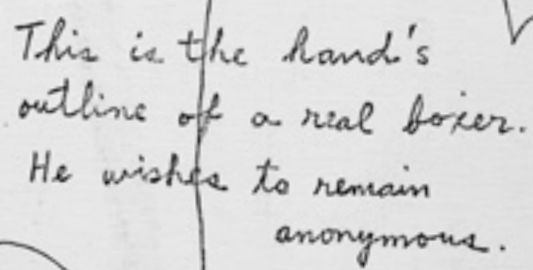 This is the hand's
outline of a real boxer.
He wishes to remain
anonymous.